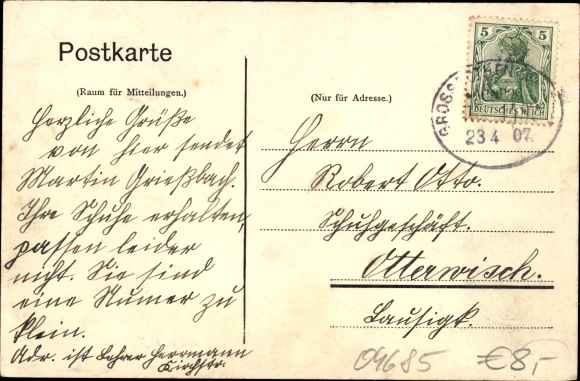 Postkarte
(Raum für Mitteilungen.)
(Nur für Adresse.)
5 5
DEUTSCHES REICH
23 4 07.
Herzliche Grüße
von hier sendet
Martin Grießbach.
Ihre Schuhe erhalten,
passen leider
nicht. Sie sind
eine Numer zu
klein.
Adr. ist Lehrer Herrmann
Kirchstr.
Herrn
Robert Otto.
Schuhgeschäft.
Otterwisch.
Lausigk.
04685 €8,-